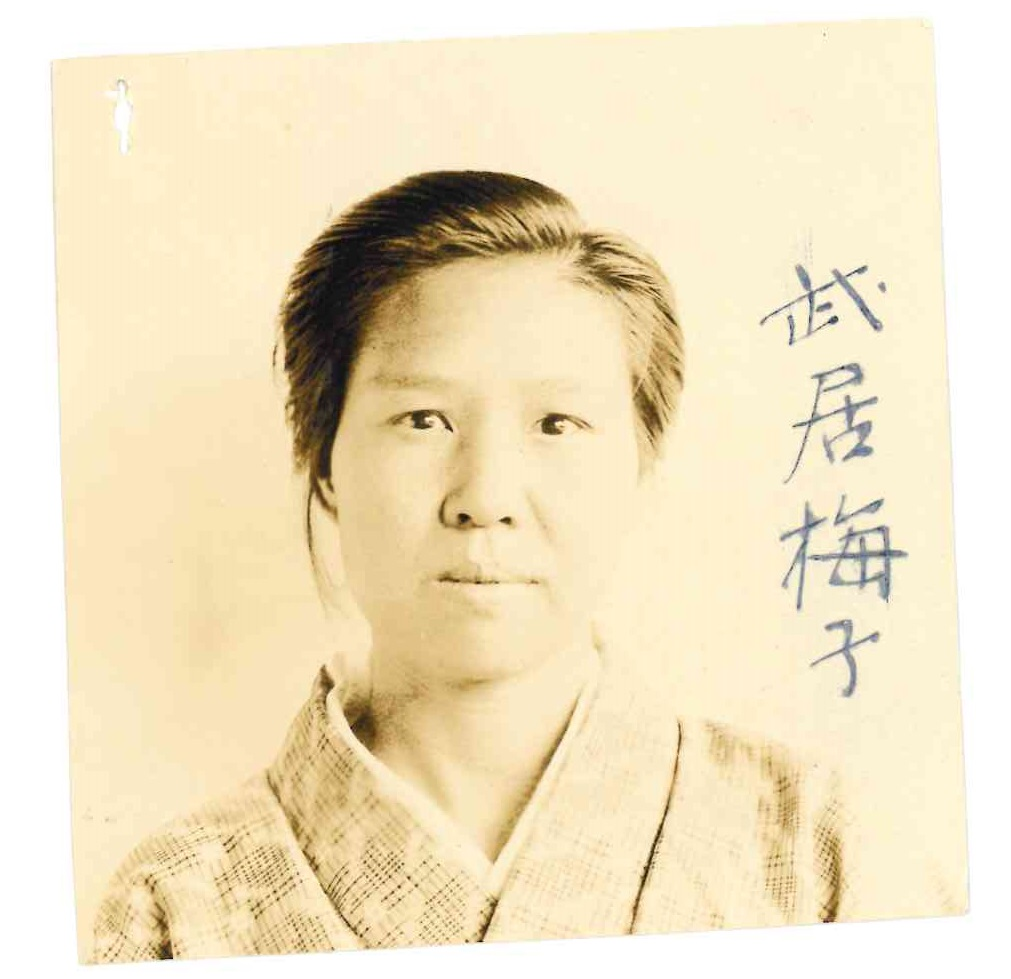 武居梅子